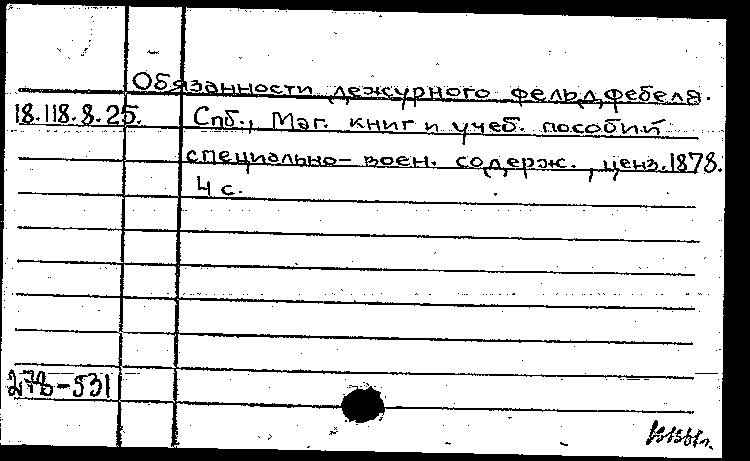 Обязанности дежурного фельдфебеля.
18.118.8.25. Спб., Маг. книг и учеб. пособий
специально-воен. содерж., ценз. 1878.
4 с.
-531